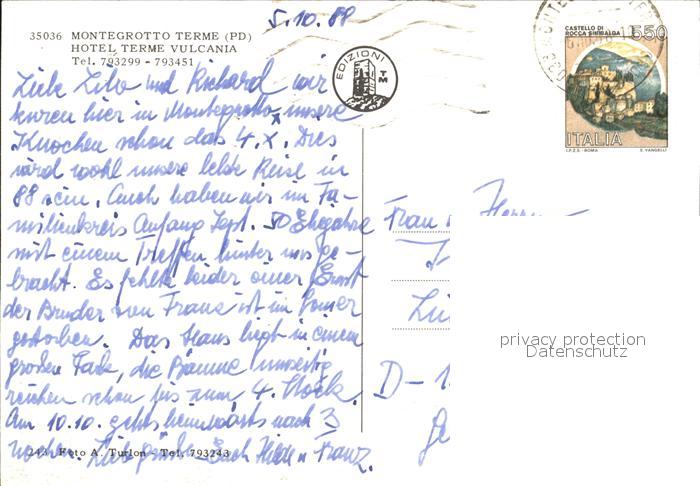 5.10.88
35036 MONTEGROTTO TERME (PD)
HOTEL TERME VULCANIA
Tel. 793299 - 793451
EDIZIONI
TM
CASTELLO DI
ROCCA SINIBALDA
550
ITALIA
I.P.Z.S. - ROMA E. VANGELLI
Liebe Lilo und Richard wir
kuren hier in Montegrotto unsere
Knochen schon das 4. X. Dies
wird wohl unsere letzte Reise in
88 sein. Auch haben wir im Fa-
milienkreis Anfang Sept. 50 Ehejahre
mit einem Treffen hinter uns ge-
bracht. Es fehlte leider einer, Ernst
der Bruder von Franz ist im
gestorben. Das Haus liegt in einem
großen Park, die Bäume
reichen schon bis zum 4. Stock.
Am 10.10. gehts heimwärts nach 3
Wochen. Liebe Grüße Euch Hilde u Franz.
243 Foto A. Turlon - Tel. 793243
Frau u. Herrn
D-
privacy protection
Datenschutz